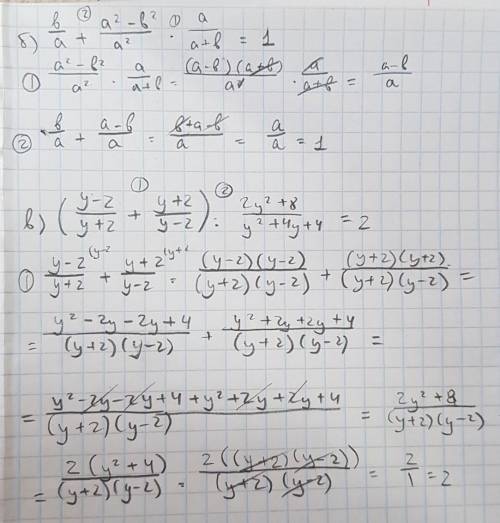 б) в/a + (a² - в²)/a² · a/(a+в) = 1
① (a² - в²)/a² · a/(a+в) = (a-в)(a+в)/a² · a/(a+в) = (a-в)/a
② в/a + (a-в)/a = (в+a-в)/a = a/a = 1
в) ((y-2)/(y+2) + (y+2)/(y-2)) : (2y²+8)/(y²+4y+4) = 2
① (y-2)/(y+2) + (y+2)/(y-2) = (y-2)(y-2)/(y+2)(y-2) + (y+2)(y+2)/(y+2)(y-2) =
= (y² - 2y - 2y + 4)/(y+2)(y-2) + (y² + 2y + 2y + 4)/(y+2)(y-2) =
= (y² - 2y - 2y + 4 + y² + 2y + 2y + 4)/(y+2)(y-2) = (2y² + 8)/(y+2)(y-2)
= 2(y²+4)/(y+2)(y-2) = 2((y+2)(y-2))/(y+2)(y-2) = 2/1 = 2